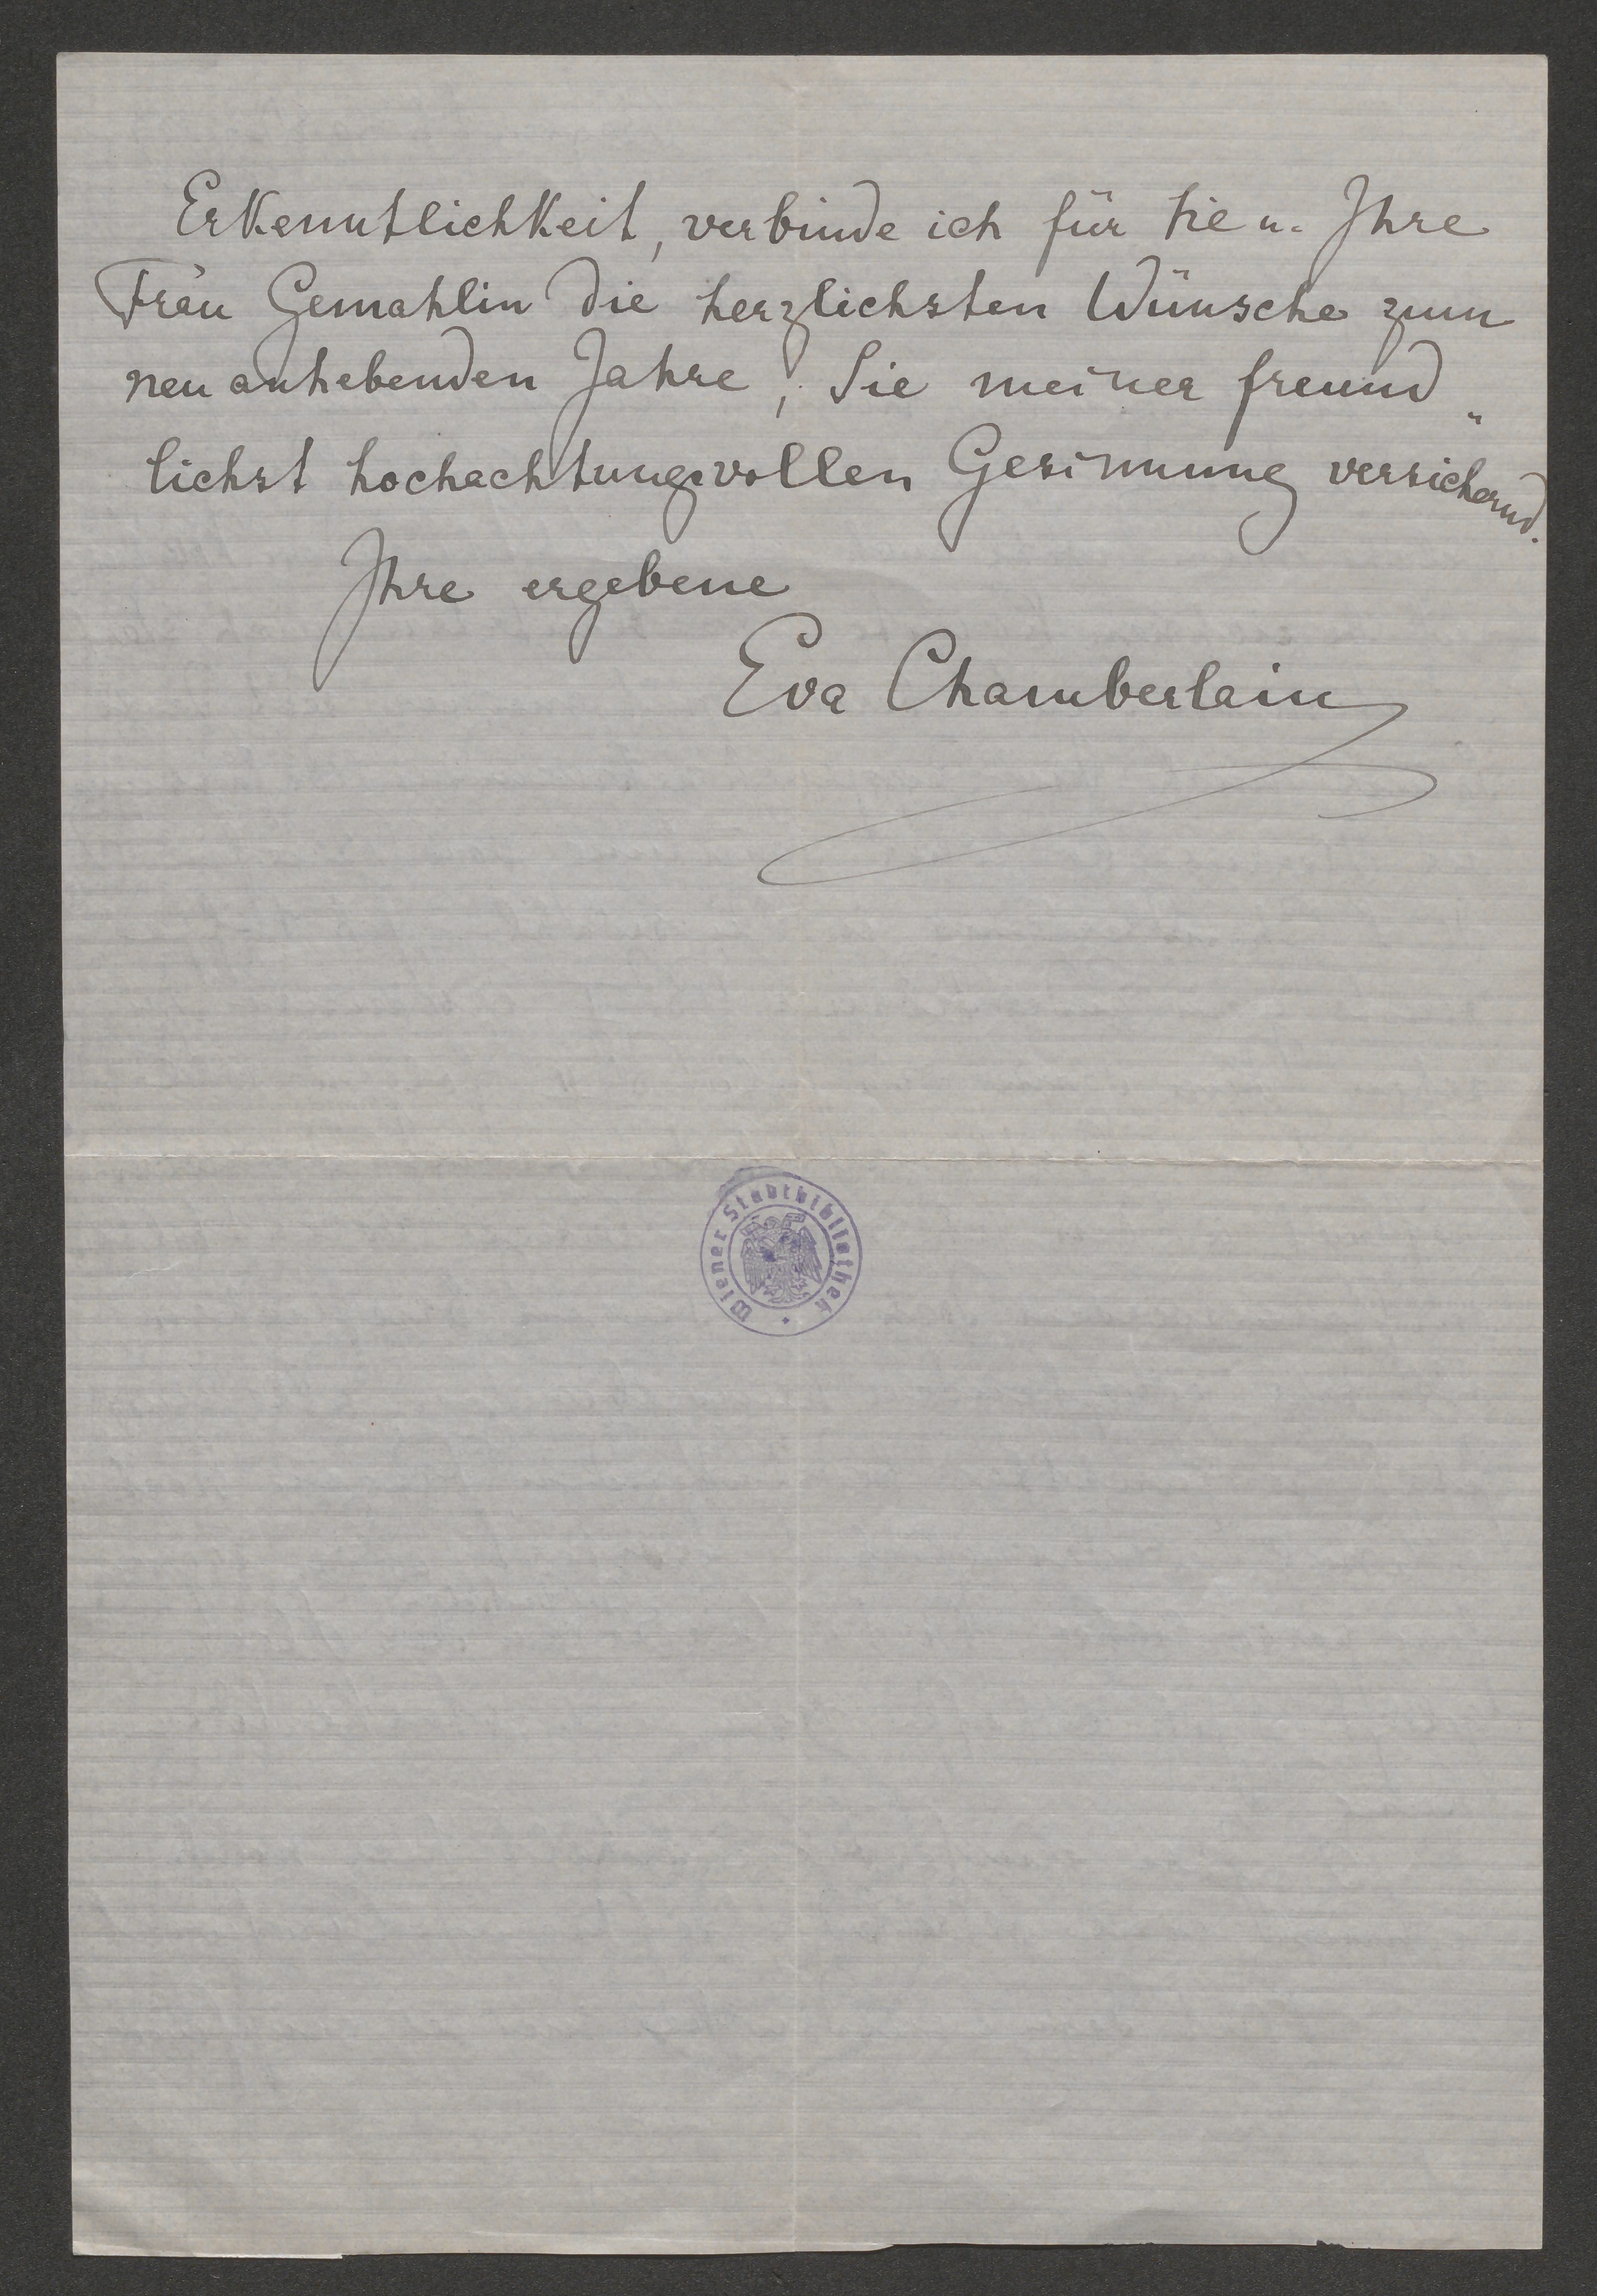 Erkenntlichkeit, verbinde ich für Sie u. Ihre
Frau Gemahlin die herzlichsten Wünsche zum
neu anhebenden Jahre, Sie meiner freund„
lichst hochachtungsvollen Gesinnung versichernd.
Ihre ergebene
Eva Chamberlain
Wiener Stadtbibliothek